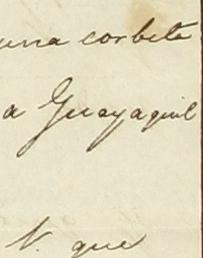 una corbeta
a Guayaquil
V. que